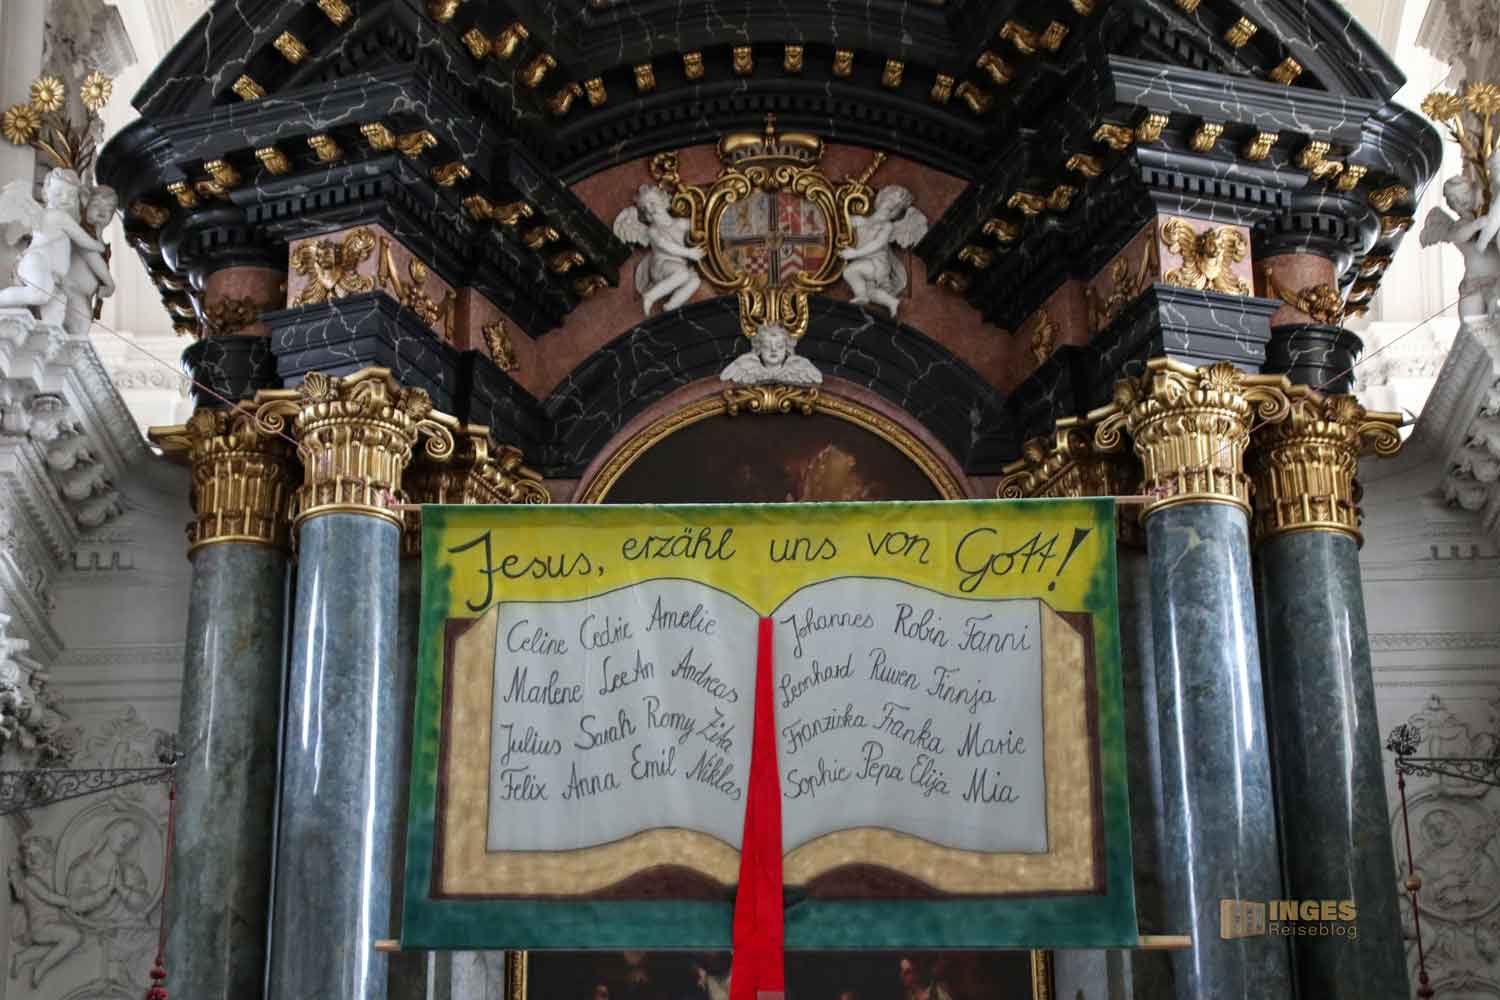 Jesus, erzähl uns von Gott!
Celine Cedric Amelie
Marlene LeeAn Andreas
Julius Sarah Romy Zita
Felix Anna Emil Niklas
Johannes Robin Fanni
Leonhard Ruven Finnja
Franziska Franka Marie
Sophie Pepa Elija Mia
INGES
Reiseblog